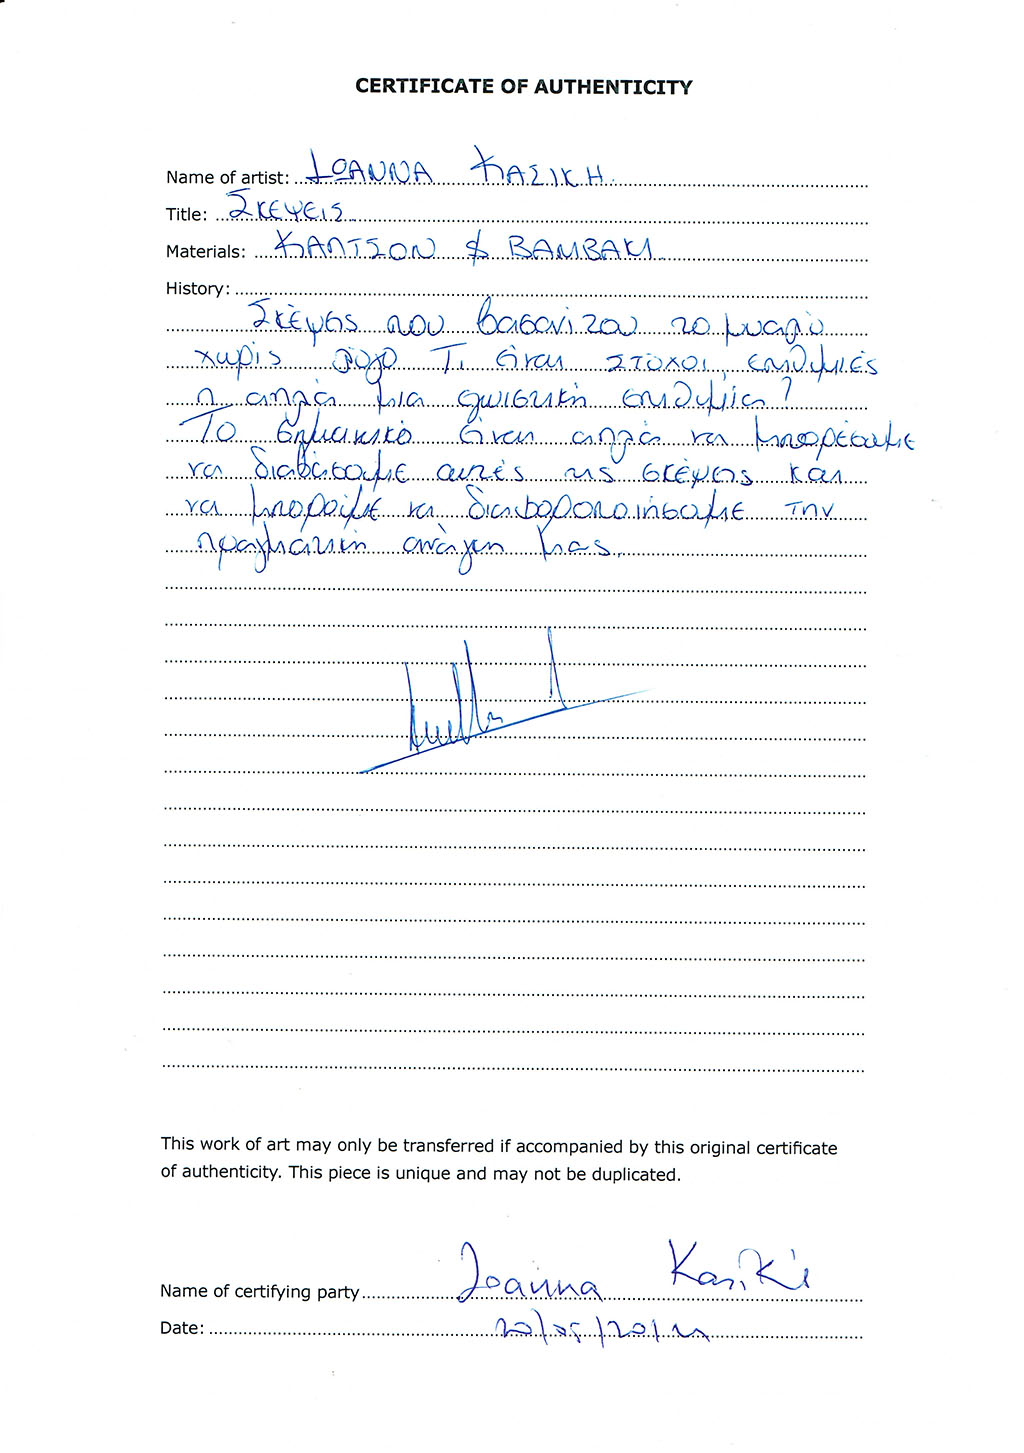 CERTIFICATE OF AUTHENTICITY
Name of artist: ΙΩΑΝΝΑ ΚΑΣΙΚΗ
Title: Σκεψεις
Materials: ΚΑΛΤΣΟΝ & ΒΑΜΒΑΚΙ
History:
Σκέψης που βασανίζου το μυαλό
χωρίς λόγο Τι είναι ΣΤΟΧΟΙ, επιθυμιές
η απλά μια εγωιστική επιθυμία?
Το σημαντικό είναι απλά να μπορέσουμε
να διαβάσουμε αυτές τις σκέψης και
να μπορούμε να διαφοροποιήσουμε την
πραγματική ανάγκη μας.
This work of art may only be transferred if accompanied by this original certificate
of authenticity. This piece is unique and may not be duplicated.
Name of certifying party Joanna Kasiki
Date: